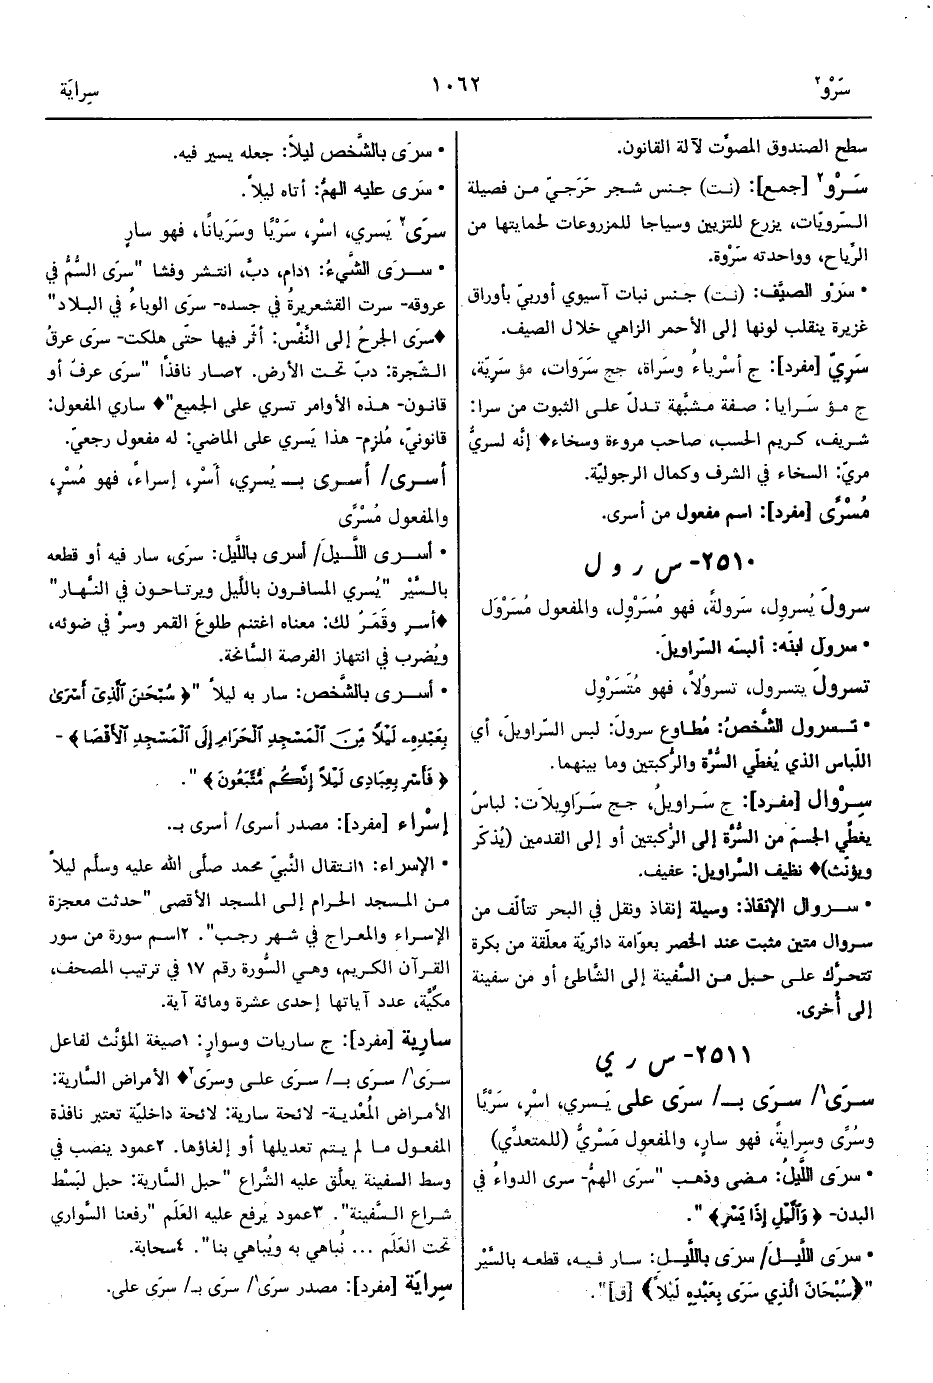 سَرْو٢
١٠٦٢
سِرايَة
سطح الصندوق المصوِّت لآلة القانون.
سَرْو٢ [جمع]: (نت) جنس شجر حَرَجيّ من فصيلة
السّرويّات، يزرع للتزيين وسياجا للمزروعات لحمايتها من
الرِّياح، وواحدته سَرْوة.
• سَرْو الصيَّف: (نت) جنس نبات آسيوي أوربيّ بأوراق
غزيرة ينقلب لونها إلى الأحمر الزاهي خلال الصيف.
سَرِيّ [مفرد]: ج أسْرياءُ وسَراة، جج سَرَوات، مؤ سَرِيّة،
ج مؤ سَرايا: صفة مشبَّهة تدلّ على الثبوت من سرا:
شريف، كريم الحسب، صاحب مروءة وسخاء♦ إنَّه لسريٌّ
مريّ: السخاء في الشرف وكمال الرجوليّة.
مُسْرًى [مفرد]: اسم مفعول من أسرى.
٢٥١٠- س ر و ل
سرولَ يُسرول، سَرولةً، فهو مُسَرْوِل، والمفعول مُسَرْوَل
• سرول ابنَه: ألبسه السّراويلَ.
تسرولَ يتسرول، تسروُلاً، فهو مُتَسَرْوِل
• تسرول الشَّخصُ: مُطاوع سرولَ: لبس السّراويلَ، أي
اللّباس الذي يُغطّي السُّرَّة والرُّكبتين وما بينهما.
سِرْوال [مفرد]: ج سَراويلُ، جج سَرَاوِيلات: لباسٌ
يغطّي الجسمَ من السُّرَّة إلى الرُّكبتين أو إلى القدمين (يُذكَّر
ويؤنَّث)♦ نظيف السَّراويل: عفيف.
• سروال الإنقاذ: وسيلة إنقاذ ونقل في البحر تتألّف من
سروال متين مثبت عند الخصر بعوّامة دائريّة معلّقة من بكرة
تتحرَّك على حبل من السَّفينة إلى الشَّاطئ أو من سفينة
إلى أُخرى.
٢٥١١- س ر ي
سرَى١/ سرَى بـ/ سرَى على يَسري، اسْرِ، سَرْيًا
وسُرًى وسِرايةً، فهو سارٍ، والمفعول مَسْرِيٌّ (للمتعدِّي)
• سرَى اللَّيلُ: مضى وذهب "سرَى الهمُّ- سرى الدواءُ في
البدن- ﴿وَٱلَّيْلِ إِذَا يَسْرِ﴾".
• سرَى اللَّيلَ/ سرَى باللَّيل: سار فيه، قطعه بالسَّيْر
"﴿سُبْحَانَ الَّذِي سَرَى بِعَبْدِهِ لَيْلاً﴾ [ق]".
• سرَى بالشَّخص ليلاً: جعله يسير فيه.
• سَرَى عليه الهمُّ: أتاه ليلاً.
سرَى٢ يَسري، اسْرِ، سَرْيًا وسَرَيانًا، فهو سارٍ
• سرَى الشَّيءُ: ١دام، دبَّ، انتشر وفشا "سرَى السُّمُّ في
عروقه- سرت القشعريرةُ في جسده- سرَى الوباءُ في البلاد"
♦سرَى الجرحُ إلى النَّفْس: أثّر فيها حتّى هلكت- سرَى عرقُ
الشَّجرة: دبّ تحت الأرض. ٢صار نافذاً "سرَى عرفٌ أو
قانون- هذه الأوامر تسري على الجميع"♦ ساري المفعول:
قانونيّ، مُلزِم- هذا يَسري على الماضي: له مفعول رجعيّ.
أسرى/ أسرى بـ يُسري، أَسْرِ، إسراءً، فهو مُسْرٍ،
والمفعول مُسْرًى
• أسرى اللَّيلَ/ أسرى باللَّيل: سرَى، سار فيه أو قطعه
بالسَّيْر "يُسري المسافرون باللَّيل ويرتاحون في النَّهار"
♦أسرِ وقَمَرٌ لك: معناه اغتنم طلوعَ القمر وسرْ في ضوئه،
ويُضرب في انتهاز الفرصة السَّانحة.
• أسرى بالشَّخص: سار به ليلاً "﴿سُبْحَٰنَ ٱلَّذِىٓ أَسْرَىٰ
بِعَبْدِهِۦ لَيْلًا مِّنَ ٱلْمَسْجِدِ ٱلْحَرَامِ إِلَى ٱلْمَسْجِدِ ٱلْأَقْصَا﴾-
﴿فَأَسْرِ بِعِبَادِى لَيْلًا إِنَّكُم مُّتَّبَعُونَ﴾".
إسْراء [مفرد]: مصدر أسرى/ أسرى بـ.
• الإسراء: ١انتقال النَّبيّ محمد صلَّى الله عليه وسلَّم ليلاً
من المسجد الحرام إلى المسجد الأقصى "حدثت معجزة
الإسراء والمعراج في شهر رجب". ٢اسم سورة من سور
القرآن الكريم، وهي السُّورة رقم ١٧ في ترتيب المصحف،
مكِّيَّة، عدد آياتها إحدى عشرة ومائة آية.
سارِية [مفرد]: ج ساريات وسوارٍ: ١صيغة المؤنَّث لفاعل
سرَى١/ سرَى بـ/ سرَى على وسرَى٢♦ الأمراض السَّارية:
الأمراض المُعْدية- لائحة سارية: لائحة داخليّة تعتبر نافذة
المفعول ما لم يتم تعديلها أو إلغاؤها. ٢عمود ينصب في
وسط السفينة يعلَّق عليه الشَّراع "حبل السَّارية: حبل لبَسْط
شراع السَّفينة". ٣عمود يُرفع عليه العَلَم "رفعنا السَّواري
تحت العَلَم ... نُباهي به ويُباهي بنا". ٤سحابة.
سِرايَة [مفرد]: مصدر سرَى١/ سرَى بـ/ سرَى على.